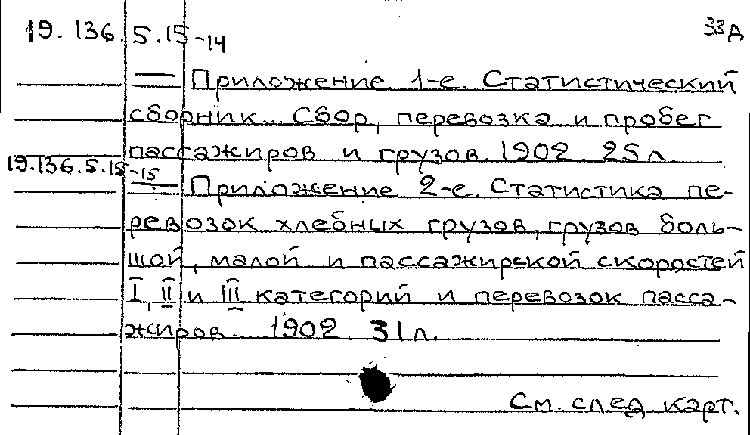 19.136.5.15-14
33Д
— Приложение 1-е. Статистический
сборник. Сбор, перевозка и пробег
пассажиров и грузов. 1902. 25 л.
19.136.5.15-15
— Приложение 2-е. Статистика пе-
ревозок хлебных грузов, грузов боль-
шой, малой и пассажирской скоростей
I, II и III категорий и перевозок пасса-
жиров. 1902. 31 л.
См. след. карт.